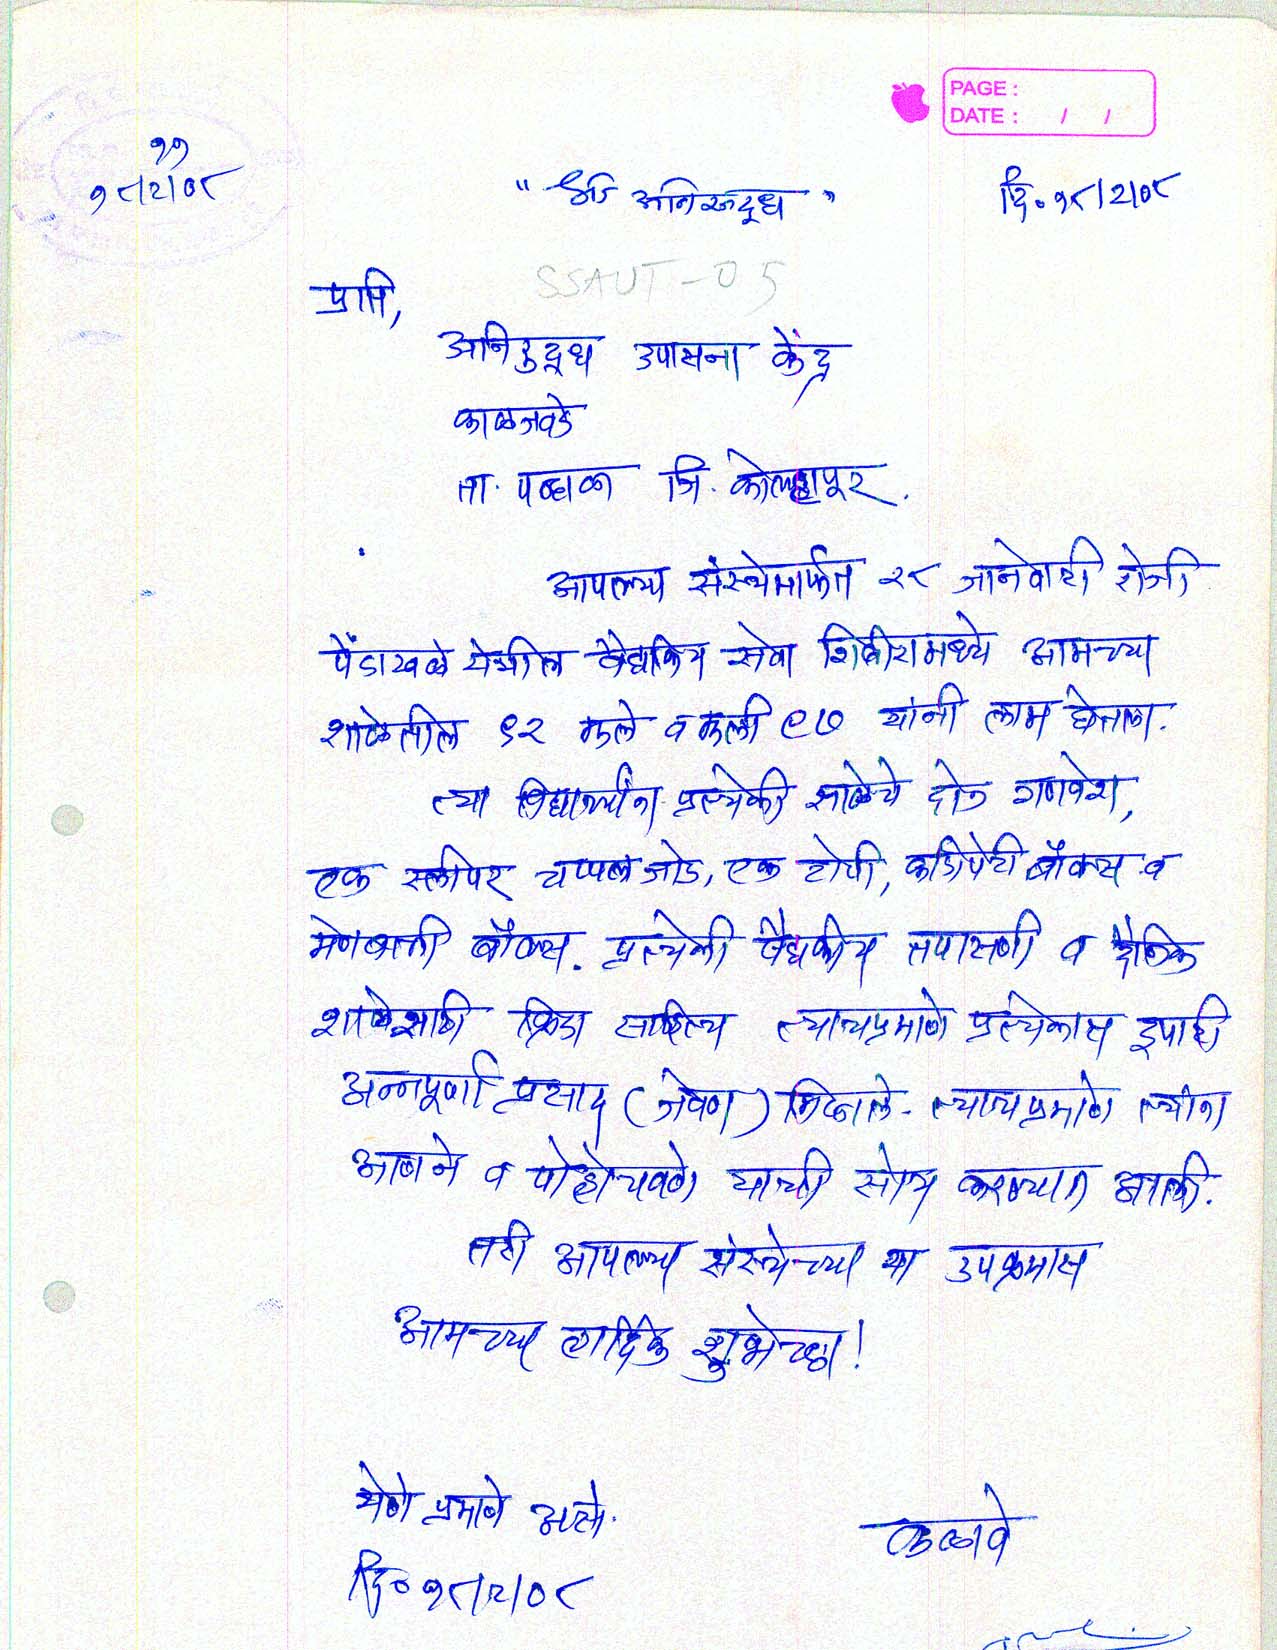 PAGE :
DATE : / /
११
१८/२/०८
"श्री अनिरुद्ध"
दि० १८/२/०८
SSAUT-05
प्रति,
अनिरुद्ध उपासना केंद्र
काळजवडे
ता. पन्हाळा जि. कोल्हापूर.
आपल्या संस्थेमार्फत २८ जानेवारी रोजी
पेंडाखळे येथील वैद्यकिय सेवा शिबीरामध्ये आमच्या
शाळेतील ९२ मुले व मुली ९७ यांनी लाभ घेतला.
त्या विद्यार्थ्यांना प्रत्येकी शाळेचे दोन गणवेश,
एक स्लीपर चप्पल जोड, एक टोपी, काडीपेटी बॉक्स व
मेणबत्ती बॉक्स. प्रत्येकी वैद्यकीय तपासणी व
शाळेसाठी क्रिडा साहित्य त्याचप्रमाणे प्रत्येकास दुपारी
अन्नपूर्णा प्रसाद (जेवण) मिळाले. त्याचप्रमाणे त्यांना
आणने व पोहोचवणे याची सोय करण्यात आली.
तरी आपल्या संस्थेच्या या उपक्रमास
आमच्या हार्दिक शुभेच्छा!
येणे प्रमाणे असे.
कळावे
दि० १८/२/०८